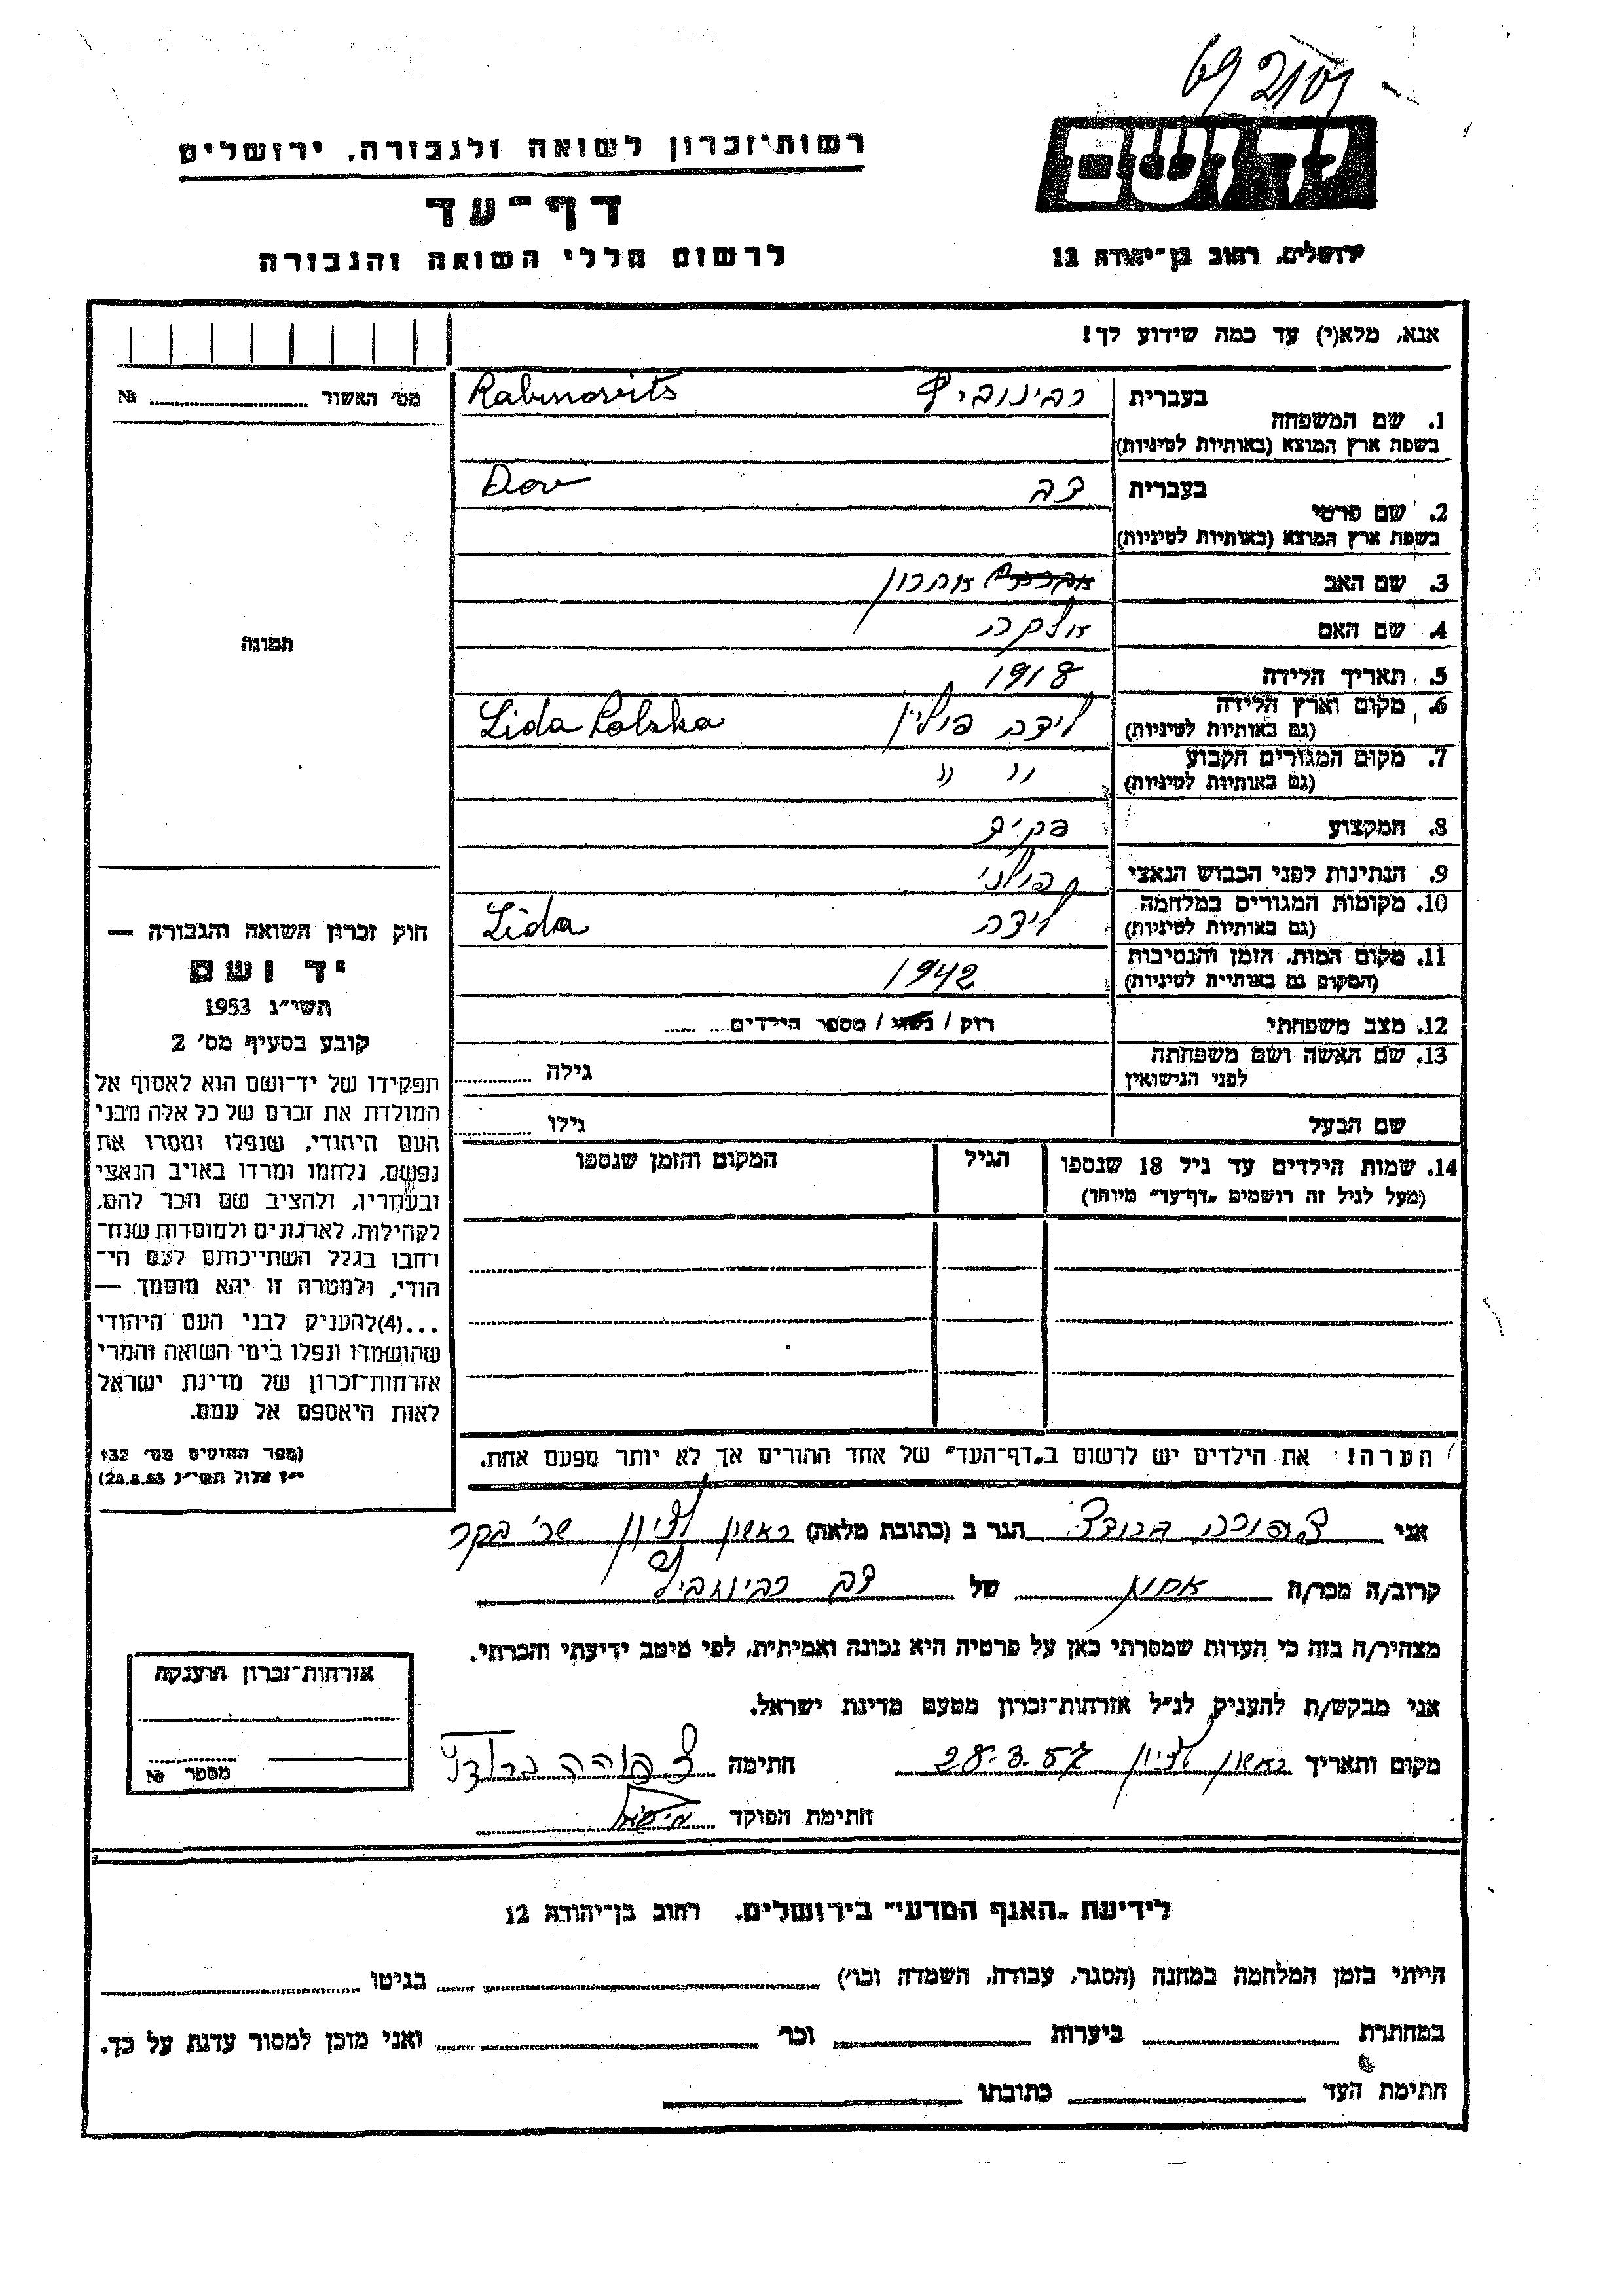 69 2101
יד ושם
ירושלים, רחוב בן־יהודה 12
רשות־זכרון לשואה ולגבורה, ירושלים
דף־עד
לרשום חללי השואה והגבורה
אנא, מלא(י) עד כמה שידוע לך!
מס׳ האשור ........ №
תמונה
חוק זכרון השואה והגבורה —
יד ושם
תשי״ג 1953
קובע בסעיף מס׳ 2
תפקידו של יד־ושם הוא לאסוף אל
המולדת את זכרם של כל אלה מבני
העם היהודי, שנפלו ומסרו את
נפשם, נלחמו ומרדו באויב הנאצי
ובעוזריו, ולהציב שם וזכר להם,
לקהילות, לארגונים ולמוסדות שנח־
רחבו בגלל השתייכותם לעם הי־
הודי, ולמטרה זו יהא מוסמך —
...(4)להעניק לבני העם היהודי
שהושמדו ונפלו בימי השואה והמרי
אזרחות־זכרון של מדינת ישראל
לאות היאספם אל עמם.
(ספר החוקים מס׳ 132
י״ז אלול תשי״ג 28.8.53)
1. שם המשפחה בעברית רבינוביץ Rabinovits
בשפת ארץ המוצא (באותיות לטיניות)
2. שם פרטי בעברית דב Dov
בשפת ארץ המוצא (באותיות לטיניות)
3. שם האב אהרון
4. שם האם
5. תאריך הלידה 1918
6. מקום וארץ הלידה לידה פולין Lida Polska
(גם באותיות לטיניות)
7. מקום המגורים הקבוע " "
(גם באותיות לטיניות)
8. המקצוע פקיד
9. הנתינות לפני הכבוש הנאצי פולני
10. מקומות המגורים במלחמה לידה Lida
(גם באותיות לטיניות)
11. מקום המות, הזמן והנסיבות 1942
(המקום גם באותיות לטיניות)
12. מצב משפחתי רווק / נשוי / מספר הילדים........
13. שם האשה ושם משפחתה גילה ........
לפני הנישואין
שם הבעל גילו ........
14. שמות הילדים עד גיל 18 שנספו הגיל המקום והזמן שנספו
(מעל לגיל זה רושמים „דף־עד״ מיוחד)
הערה! את הילדים יש לרשום ב„דף־העד״ של אחד ההורים אך לא יותר מפעם אחת.
אני צפורה הגר ב (כתובת מלאה) ראשון לציון
קרוב/ה מכר/ה אחות של דב רבינוביץ
מצהיר/ה בזה כי העדות שמסרתי כאן על פרטיה היא נכונה ואמיתית, לפי מיטב ידיעתי והכרתי.
אני מבקש/ת להעניק לנ״ל אזרחות־זכרון מטעם מדינת ישראל.
מקום ותאריך ראשון לציון 28.3.57 חתימה צפורה
חתימת הפוקד
אזרחות־זכרון הוענקה
מספר №
לידיעת „האגף המדעי״ בירושלים, רחוב בן־יהודה 12
הייתי בזמן המלחמה במחנה (הסגר, עבודה, השמדה וכו׳) ........ בגיטו ........
במחתרת ........ ביערות ........ וכו׳ ........ ואני מוכן למסור עדות על כך.
חתימת העד ........ כתובתו ........